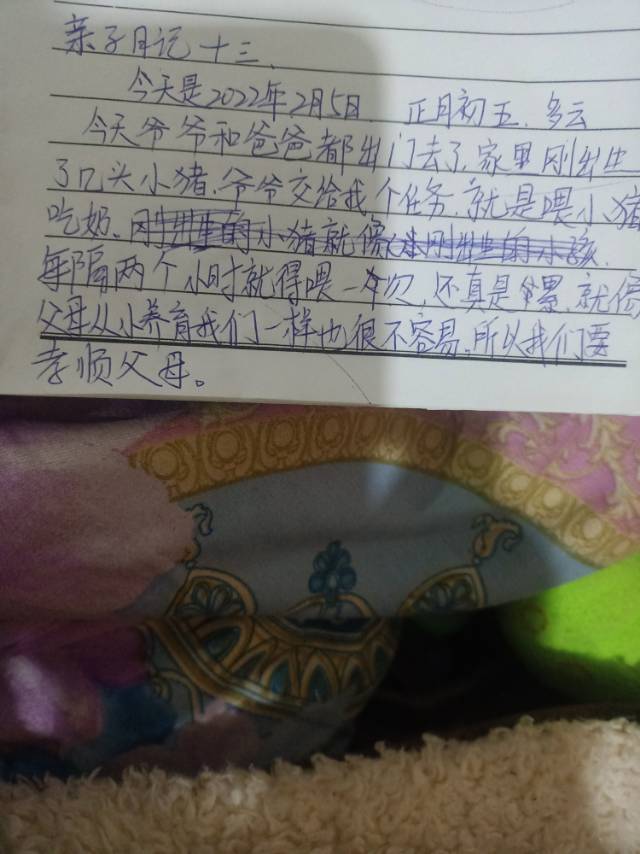 亲子日记十三、
今天是2022年2月5日、正月初五、多云
今天爷爷和爸爸都出门去了,家里刚出生
了几头小猪,爷爷交给我个任务,就是喂小猪
吃奶、刚出生的小猪就像小刚出生的小孩,
每隔两个小时就得喂一次,还真是累,就像
父母从小养育我们一样也很不容易,所以我们要
孝顺父母。